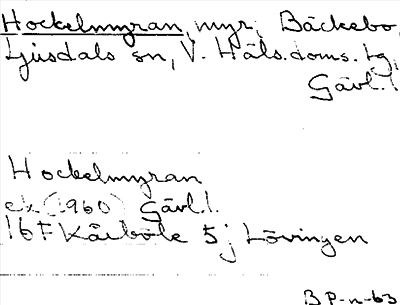 Hockelmyran, myr, Bäckebo,
Ljusdals sn, V. Häls. doms. tg,
Gävl. l.
Hockelmyran
ek (1960) Gävl. l.
16F Kårböle 5 j Lövingen
B P-n-63